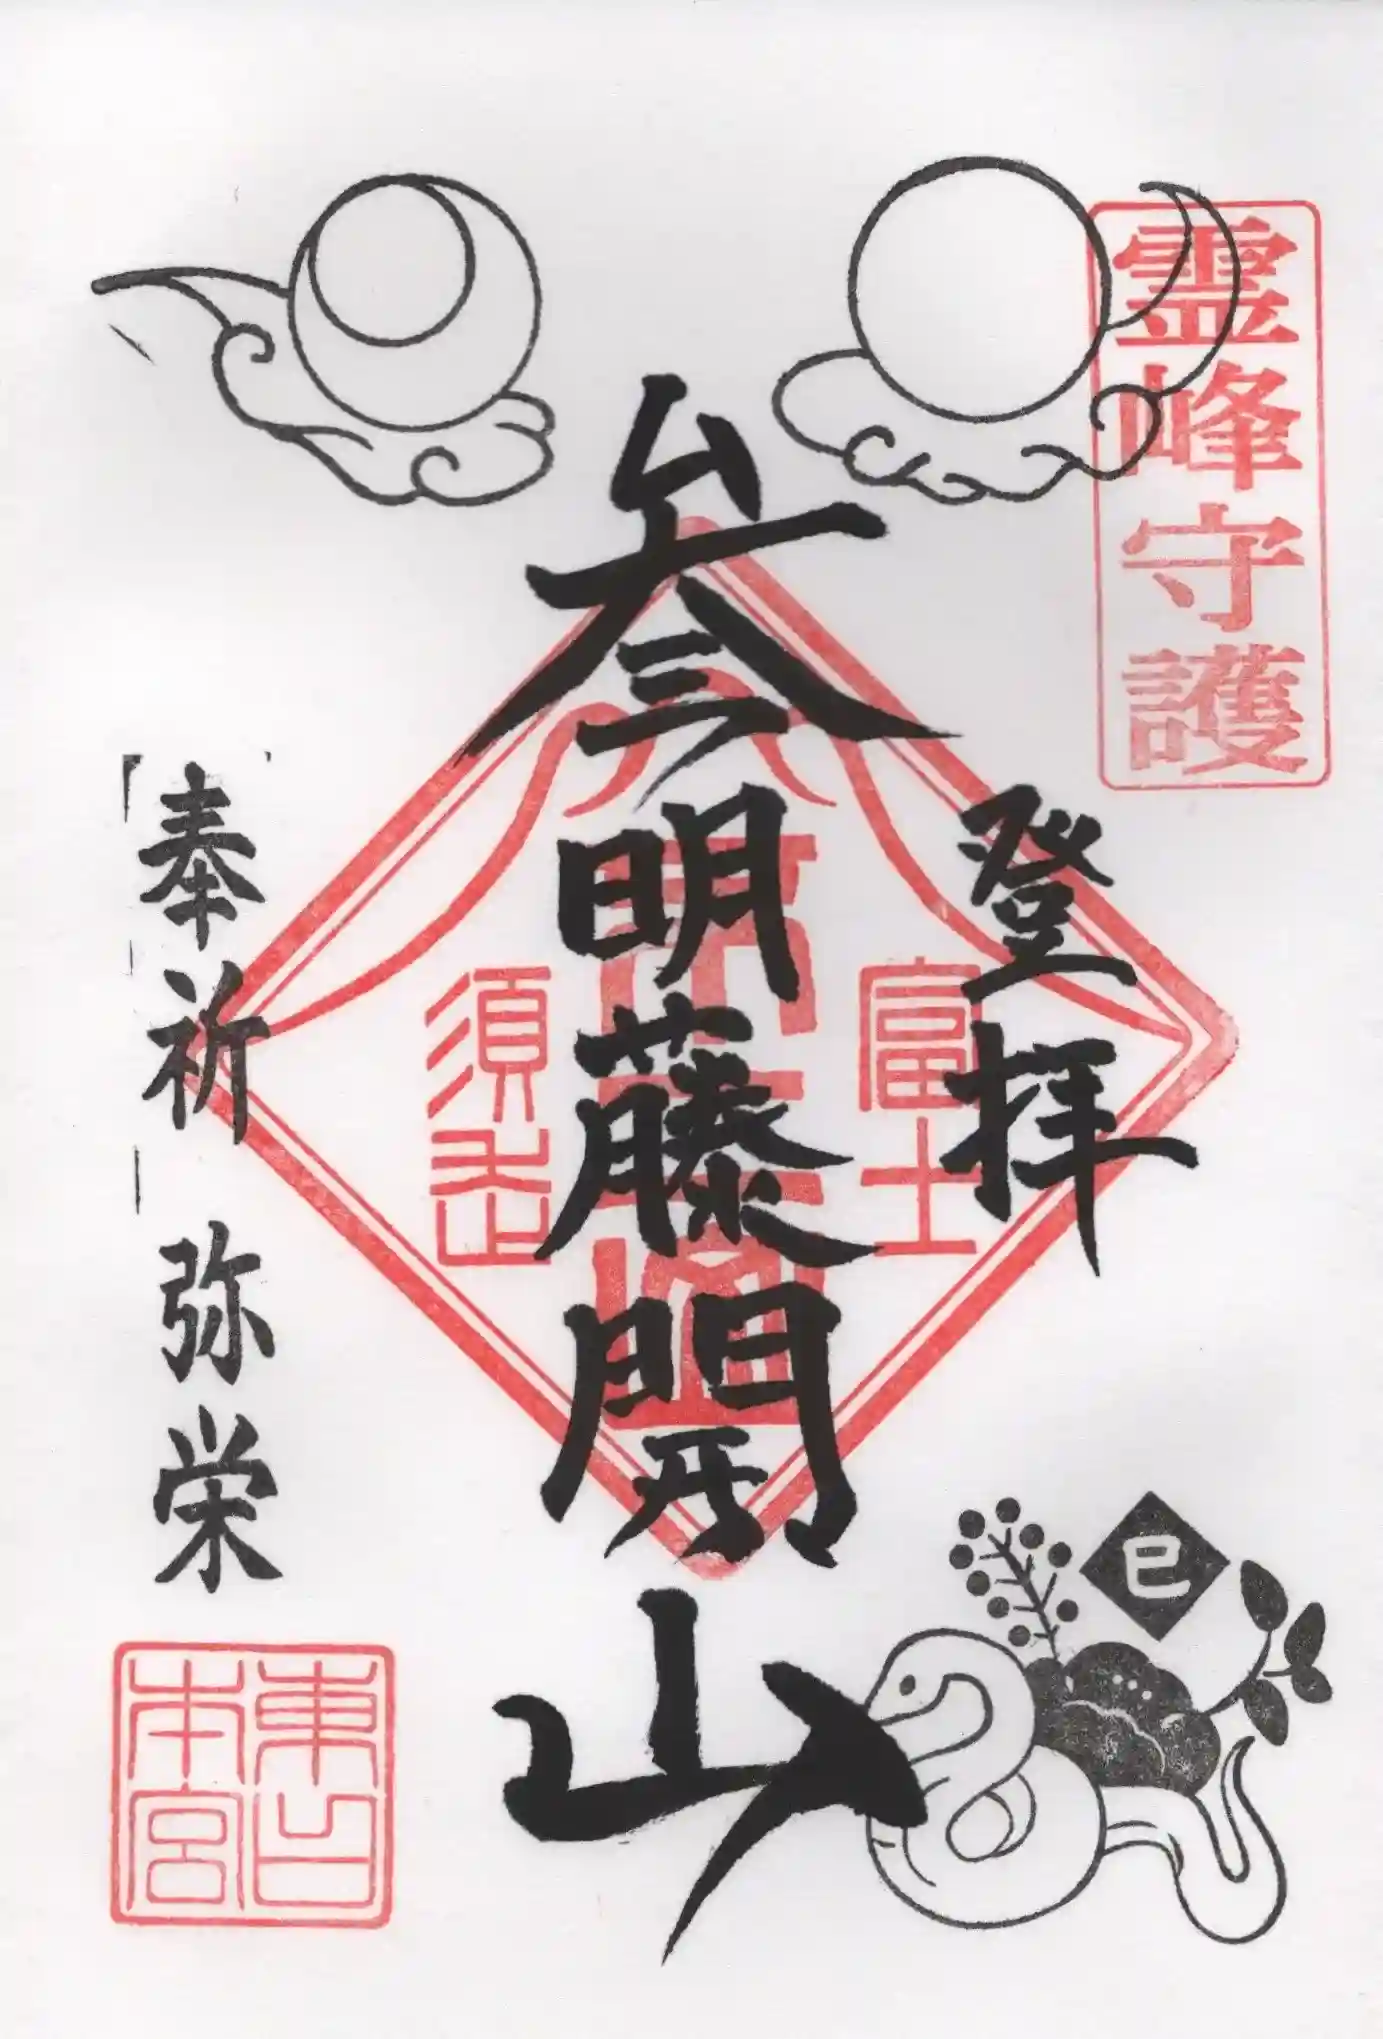 霊峰守護
登拝
富士
參明藤開山
須走
奉祈 弥栄
東口本宮
巳